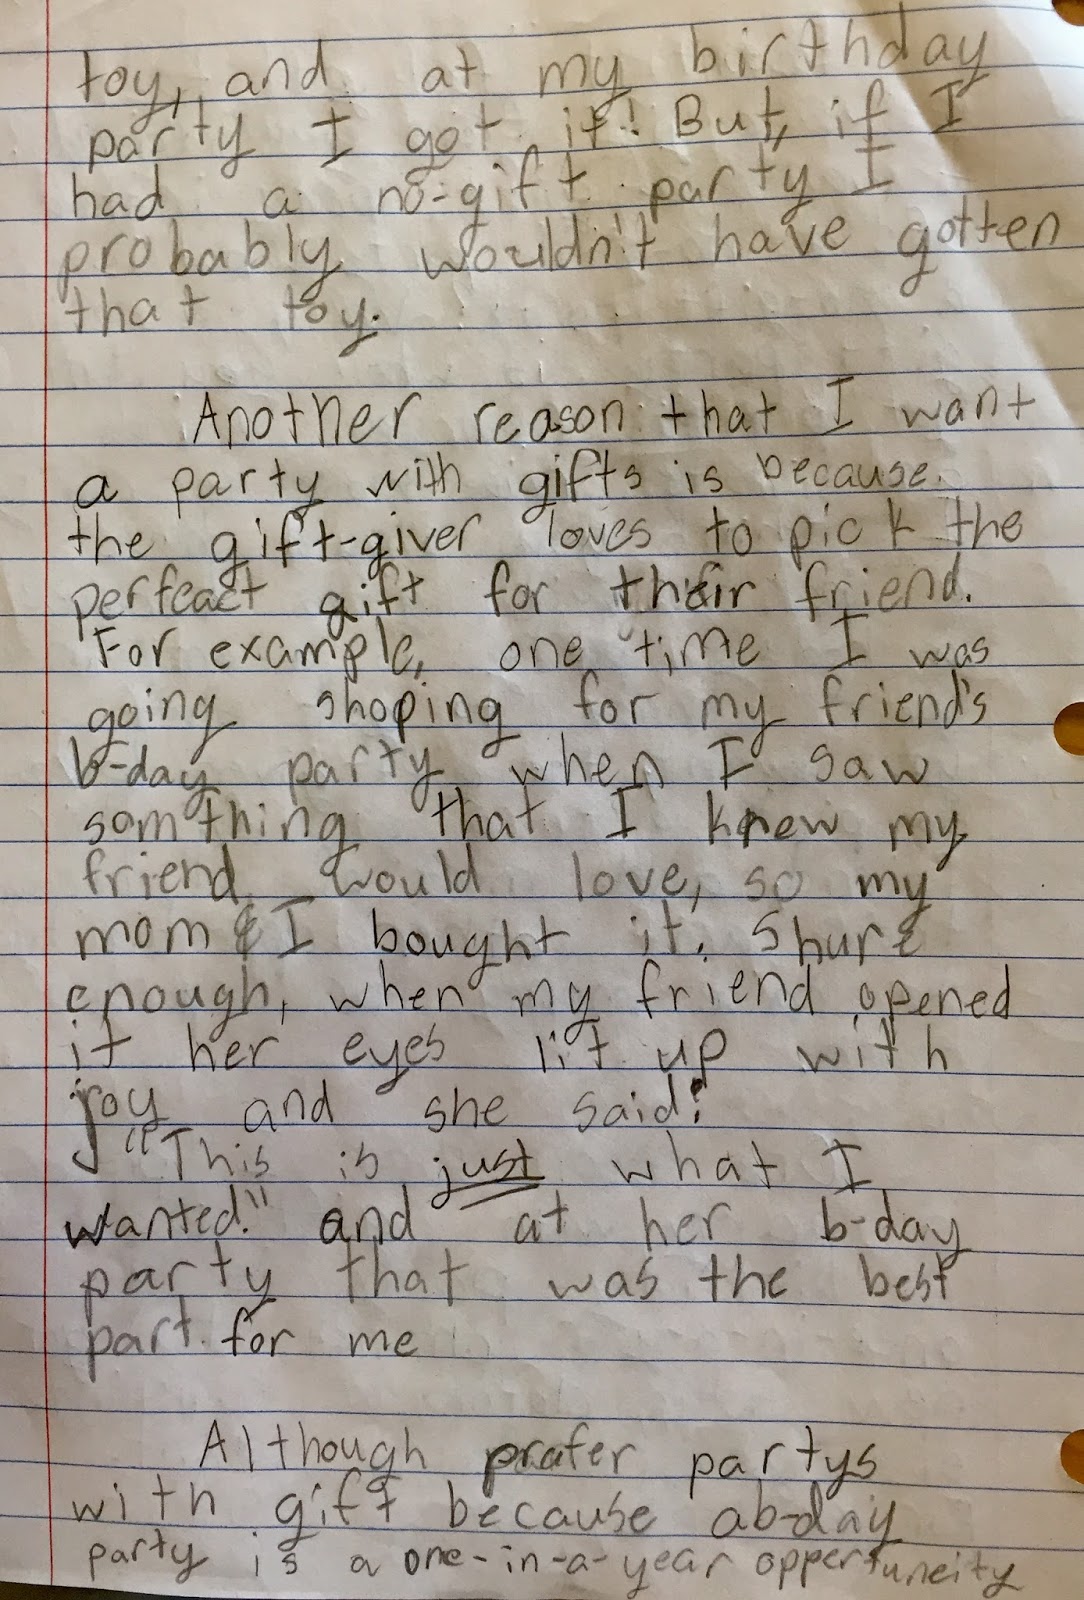 toy, and at my birthday
party I got it! But, if I
had a no-gift party I
probably wouldn't have gotten
that toy.
Another reason that I want
a party with gifts is because
the gift-giver loves to pick the
perfeact gift for their friend.
For example, one time I was
going shoping for my friend's
b-day party when I saw
somthing that I knew my
friend would love, so my
mom & I bought it. Shure
enough, when my friend opened
it her eyes lit up with
joy and she said:
"This is just what I
wanted." and at her b-day
party that was the best
part for me
Although prafer partys
with gift because ab-day
party is a one-in-a-year oppertuneity